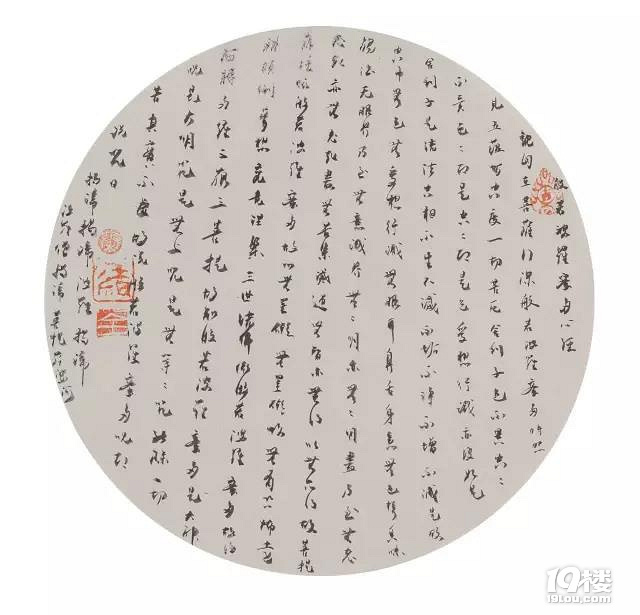 般若波羅蜜多心經
觀自在菩薩行深般若波羅蜜多時照
見五蘊皆空度一切苦厄舍利子色不異空空
不異色色即是空空即是色受想行識亦復如是
舍利子是諸法空相不生不滅不垢不淨不增不減是故
空中無色無受想行識無眼耳鼻舌身意無色聲香味
觸法無眼界乃至無意識界無無明亦無無明盡乃至無老
死亦無老死盡無苦集滅道無智亦無得以無所得故菩提
薩埵依般若波羅蜜多故心無罣礙無罣礙故無有恐怖遠
離顛倒夢想究竟涅槃三世諸佛依般若波羅蜜多故得
阿耨多羅三藐三菩提故知般若波羅蜜多是大神
咒是大明咒是無上咒是無等等咒能除一切
苦真實不虛故說般若波羅蜜多咒即
說咒曰
揭諦揭諦波羅揭諦
波羅僧揭諦菩提薩婆訶
19楼
19lou.com